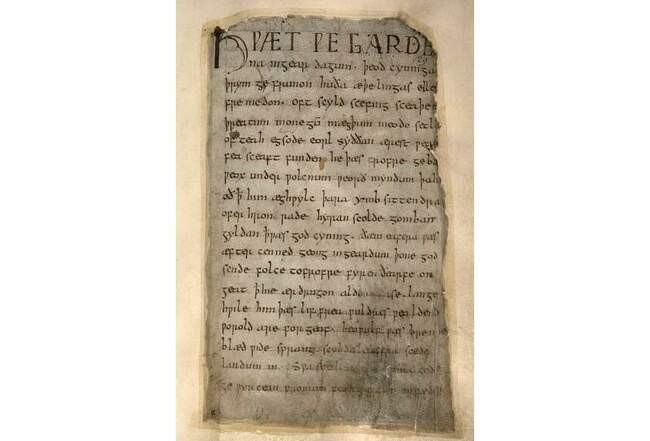 HǷÆT ǷE GARDE
na ingear dagum . þeod cyninga
þrym ge frunon huða æþelingas elle
fre medon . oft scyld scefing sceaþe
þreatum monegū mægþum meodo setla
of teah egsode eorl syððan ærest ƿear
fea sceaft funden he þæs frofre geba
ƿeox under ƿolcnum ƿeorð myndum þah
oð ꝥ him æghƿylc þara ymb sittendra
ofer hron rade hyran scolde gomban
gyldan ꝥ ƿæs god cyning . ðæm eafera ƿæs
æfter cenned geong in geardum þone god
sende folce tofrofre fyren ðearfe on
geat ꝥ hie ær drugon aldor ase . lange
hƿile him þæs lif frea ƿuldres ƿealdend
ƿorold are for geaf . beoƿulf ƿæs breme
blæd ƿide sprang scyldes eafera scede
landum in . Sƿa uma gode
ge ƿyrcean fromum